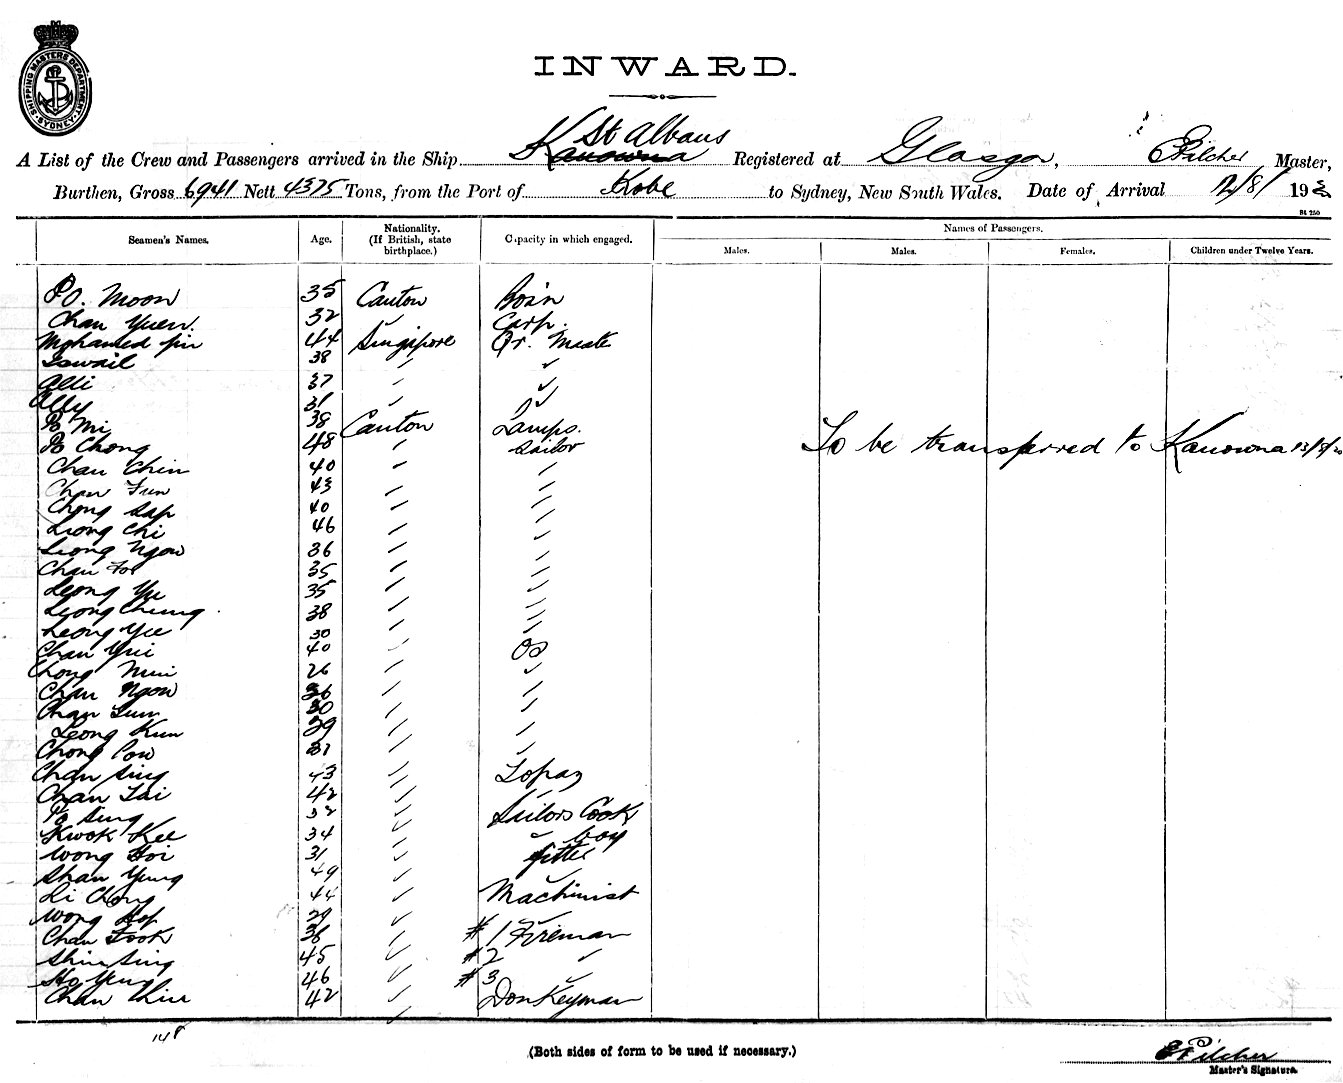 SHIPPING MASTERS DEPARTMENT
SYDNEY
INWARD.
St Albans
A List of the Crew and Passengers arrived in the Ship Kanowna Registered at Glasgow, E Pilcher Master,
Burthen, Gross 6941 Nett 4375 Tons, from the Port of Kobe to Sydney, New South Wales. Date of Arrival 12/8/ 19
Names of Passengers.
Seamen's Names. Age. Nationality. (If British, state birthplace.) Capacity in which engaged. Males. Males. Females. Children under Twelve Years.
Po. Moon 35 Canton Bosn
Chan Yuen. 32 " Carp.
Mohamed bin 44 Singipore Qr. Master
Ismail 38 " "
Alli 37 " "
Ally 31 " "
Po Mi 38 Canton Lamps.
Po Chong 48 " Sailor
To be transferred to Kanowna
Chan Chin 40 " "
Chan Fun 43 " "
Chong Sap 40 " "
Leong Chi 46 " "
Leong Ngow 36 " "
Chan For 35 " "
Leong Yu 35 " "
Leong Cheung 38 " "
Leong Yee 30 " "
Chan Yui 40 " OS
Chong Mui 26 " "
Chan Ngow 36 " "
Chan Sum 30 " "
Leong Kun 29 " "
Chong Pow 31 " "
Chan Sing 43 " Topaz
Chan Tai 42 " "
Po Sing 32 " Sailors Cook
Kwok Kee 34 " " boy
Wong Hoi 31 " fitter
Shan Yung 49 " "
Li Chong 44 " Machinist
Wong Hop 29 " "
Chan Fook 36 " # 1 Fireman
Shiu Sing 45 " # 2 "
Ho Yung 46 " # 3 "
Chan Chiu 42 " Donkeyman
148
(Both sides of form to be used if necessary.)
E Pilcher
Master's Signature.